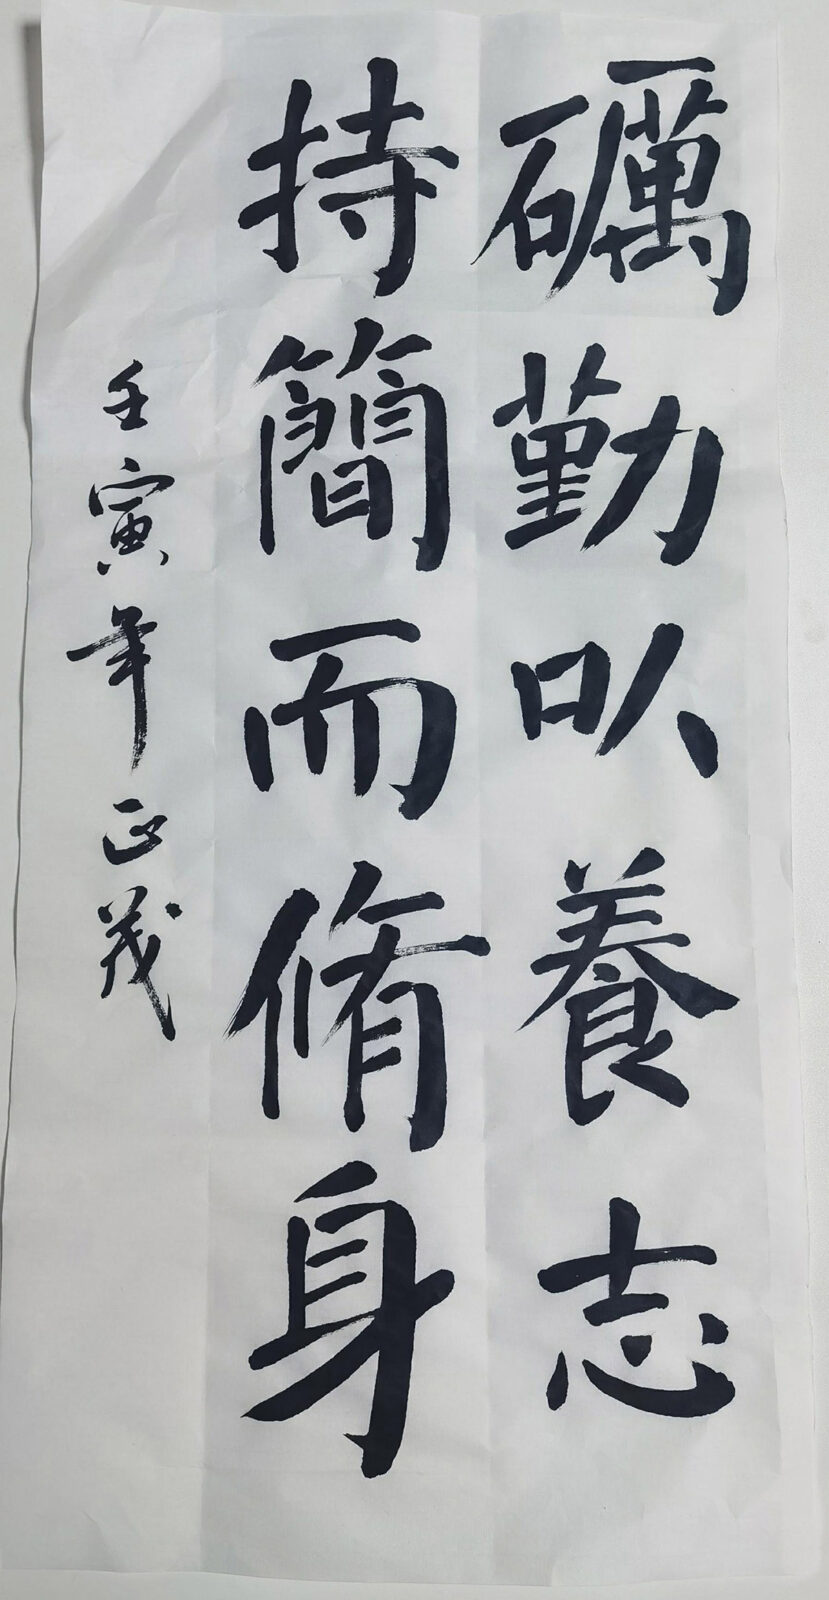 礪勤以養志
持簡而脩身
壬寅年正茂